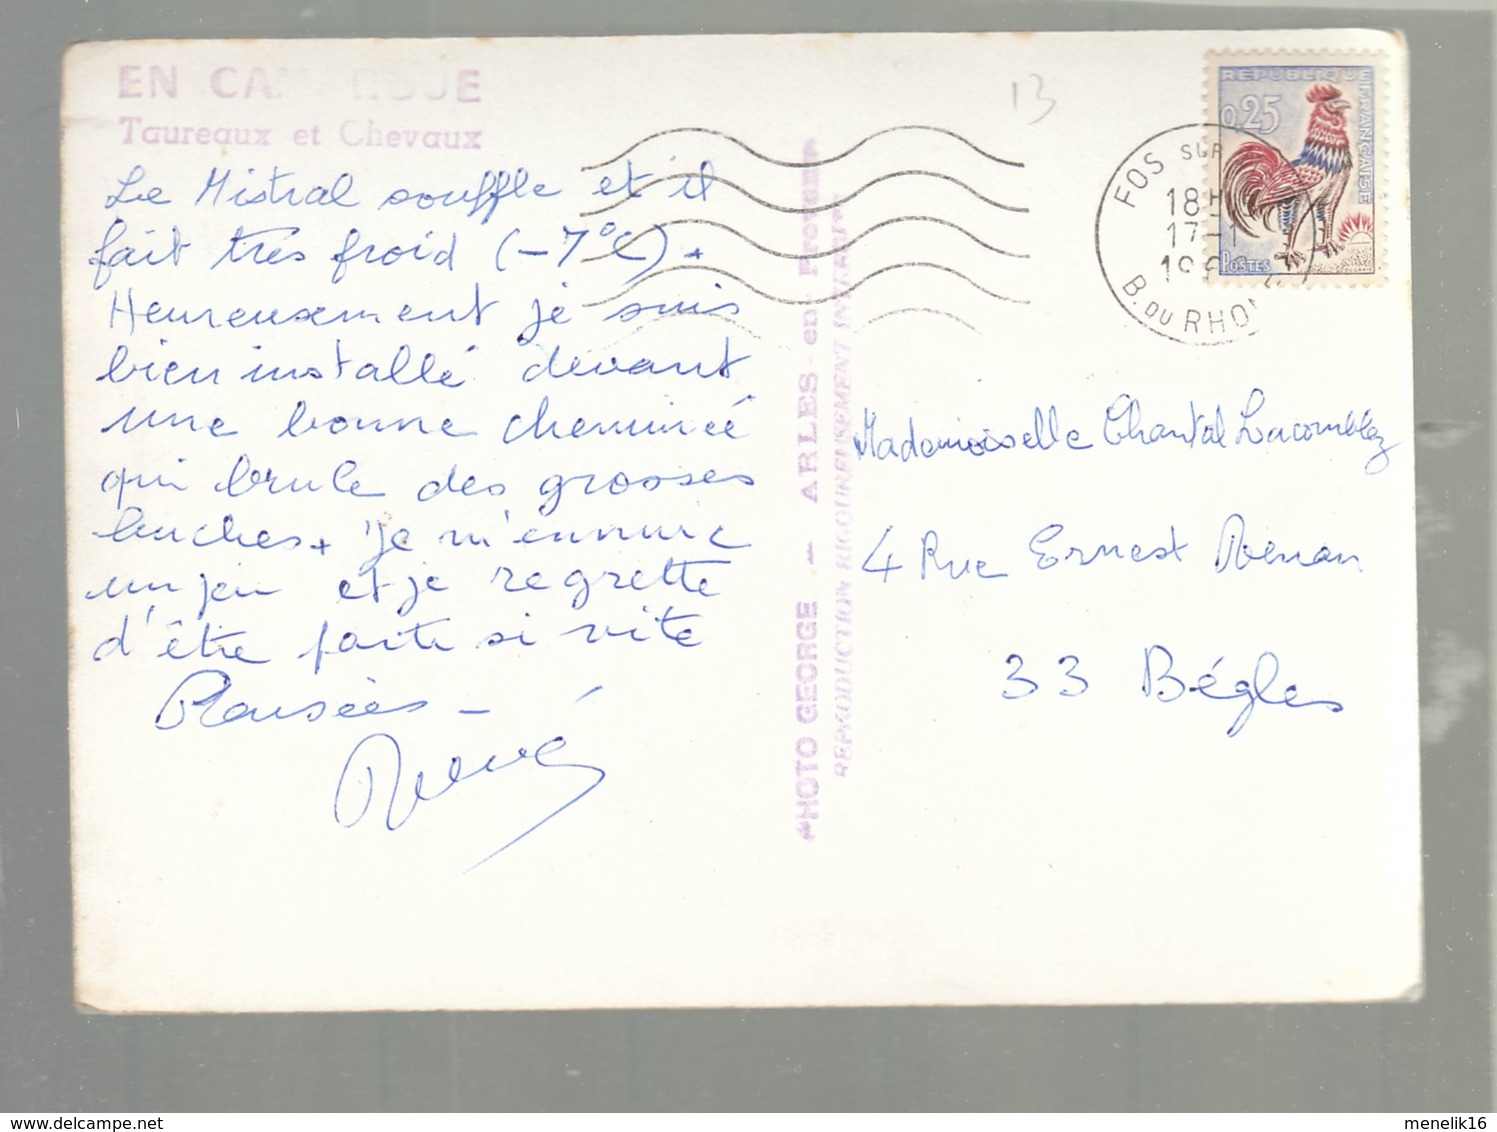 EN CAMARGUE
Taureaux et Chevaux
Le Mistral souffle et il
fait très froid (-7°C).
Heureusement je suis
bien installé devant
une bonne cheminée
qui brule des grosses
buches. Je m'ennuie
un peu et je regrette
d'être partie si vite
13
REPUBLIQUE FRANÇAISE
0,25
POSTES
FOS SUR
18H
17-1
B. DU RHONE
PHOTO GEORGE - ARLES-en-Provence
REPRODUCTION RIGOUREUSEMENT INTERDITE
Mademoiselle Chantal Lacomblez
4 Rue Ernest Renan
33 Bégles
delcampe.net
menelik16